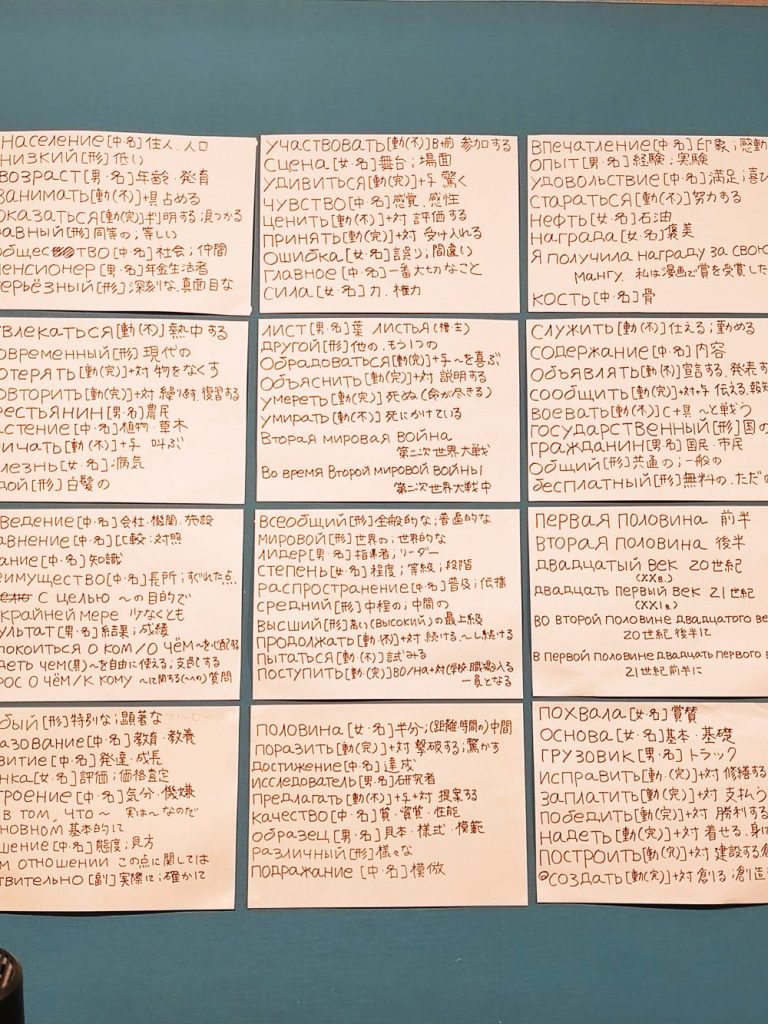 население [中・名] 住人、人口
низкий [形] 低い
возраст [男・名] 年齢・発育
занимать [動(不)] +具 占める
оказаться [動(完)] 判明する; 見つかる
равный [形] 同等の; 等しい
общество [中・名] 社会; 仲間
пенсионер [男・名] 年金生活者
серьёзный [形] 深刻な、真面目な
участвовать [動(不)] в+前 参加する
сцена [女・名] 舞台; 場面
удивиться [動(完)] +与 驚く
чувство [中・名] 感覚、感性
ценить [動(不)] +対 評価する
принять [動(完)] +対 受け入れる
ошибка [女・名] 誤り; 間違い
главное [中・名] 一番大切なこと
сила [女・名] 力、権力
впечатление [中・名] 印象; 感動
опыт [男・名] 経験; 実験
удовольствие [中・名] 満足; 喜び
стараться [動(不)] 努力する
нефть [女・名] 石油
награда [女・名] 褒美
Я получила награду за свою
мангу. 私は漫画で賞を受賞した
кость [中・名] 骨
влекаться [動(不)] 熱中する
овременный [形] 現代の
отерять [動(完)] +対 物をなくす
овторить [動(完)] +対 繰り返す、復習する
рестьянин [男・名] 農民
астение [中・名] 植物・草木
ичать [動(不)] +与 叫ぶ
лезнь [女・名] 病気
дой [形] 白髪の
лист [男・名] 葉 листья (複主)
другой [形] 他の、もう1つの
обрадоваться [動(完)] +与 〜を喜ぶ
объяснить [動(完)] +対 説明する
умереть [動(完)] 死ぬ (命が尽きる)
умирать [動(不)] 死にかけている
Вторая мировая война
第二次世界大戦
Во время Второй мировой войны
第二次世界大戦中
служить [動(不)] 仕える; 勤める
содержание [中・名] 内容
объявлять [動(不)] 宣言する、発表す
сообщить [動(完)] +対+与 伝える、報知
воевать [動(不)] с+具 〜と戦う
государственный [形] 国の
гражданин [男・名] 国民・市民
общий [形] 共通の; 一般の
бесплатный [形] 無料の、ただの
ведение [中・名] 会社・機関・施設
авнение [中・名] 比較; 対照
ание [中・名] 知識
еимущество [中・名] 長所; すぐれた点
с целью 〜の目的で
крайней мере 少なくとも
ультат [男・名] 結果; 成績
покоиться о ком/о чём 〜を心配する
деть чем (具) 〜を自由に使える; 支配する
рос о чём/к кому 〜に関する(〜への)質問
всеобщий [形] 全般的な; 普遍的な
мировой [形] 世界の; 世界的な
лидер [男・名] 指導者; リーダー
степень [女・名] 程度; 等級; 段階
распространение [中・名] 普及; 伝播
средний [形] 中程の; 中間の
высший [形] 高い (высокий) の最上級
продолжать [動(不)] +対 続ける、〜し続ける
пытаться [動(不)] 試みる
поступить [動(完)] во/на+対 (学校・職場)入る
一員となる
первая половина 前半
вторая половина 後半
двадцатый век 20世紀
(XXв.)
двадцать первый век 21世紀
(XXIв.)
во второй половине двадцатого ве
20世紀後半に
в первой половине двадцать первого в
21世紀前半に
бый [形] 特別な; 顕著な
азование [中・名] 教育・教養
витие [中・名] 発達・成長
нка [女・名] 評価; 価格査定
троение [中・名] 気分・機嫌
в том, что 〜 実は〜なのだ
новном 基本的に
шение [中・名] 態度; 見方
м отношении この点に関しては
твительно [副] 実際に; 確かに
половина [女・名] 半分; (距離・時間の)中間
поразить [動(完)] +対 撃破する; 驚かす
достижение [中・名] 達成
исследователь [男・名] 研究者
предлагать [動(不)] +与+対 提案する
качество [中・名] 質・資質・性能
образец [男・名] 見本・様式・模範
различный [形] 様々な
подражание [中・名] 模倣
похвала [女・名] 賞賛
основа [女・名] 基本・基礎
грузовик [男・名] トラック
исправить [動(完)] +対 修繕する
заплатить [動(完)] +対 支払う
победить [動(完)] +対 勝利する
надеть [動(完)] +対 着せる、身に
построить [動(完)] +対 建設する
создать [動(完)] +対 創る; 創造